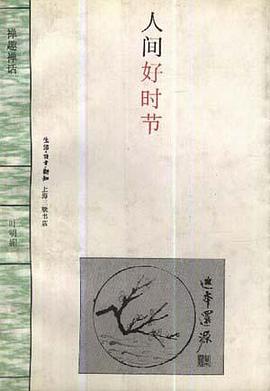 人间好时节
禅趣禅话
叶明媚
生活·读书·新知
上海三联书店
返本還源